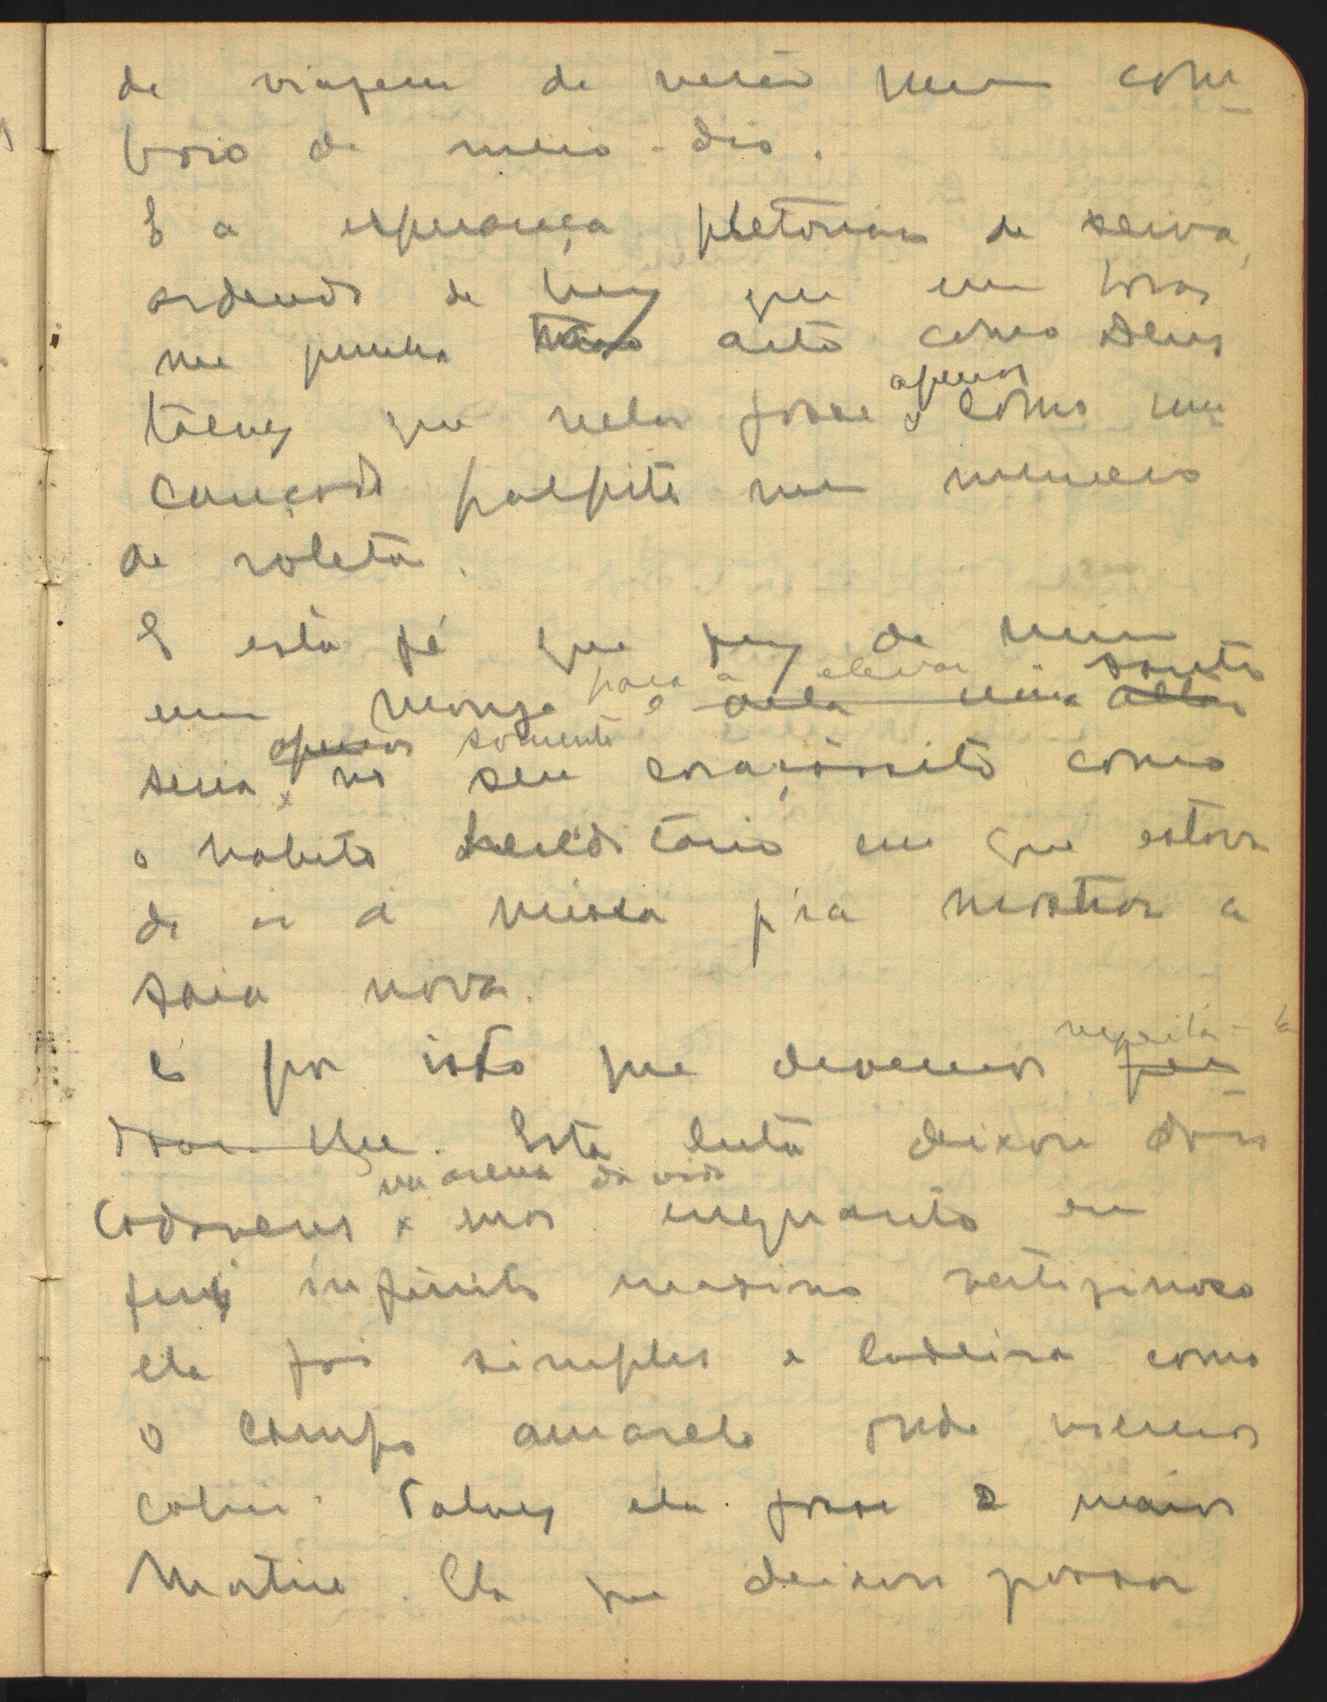 de viagem de verão num com-
boio de meio-dia.
E a esperança pletórica de seiva,
ardendo de luz que em horas
me punha alto como Deus
talvez que nela fosse apenas como um
cansado palpite num numero
de roleta.
E esta fé que fez de mim
um monge para a elevar e santo
seria apenas somente no seu coraçãosito como
o habito hereditario em que estava
de ir á missa p'ra mostrar a
saia nova.
É por isto que devemos
lhe. Esta luta deixou dois
na arena da vida
cadaveres mas enquanto eu
fui infinito vertiginoso
ela foi simples e ladeira como
o campo amarelo onde viemos
cahir. Talvez ela fosse a maior
Martir. Ela que deixou passar